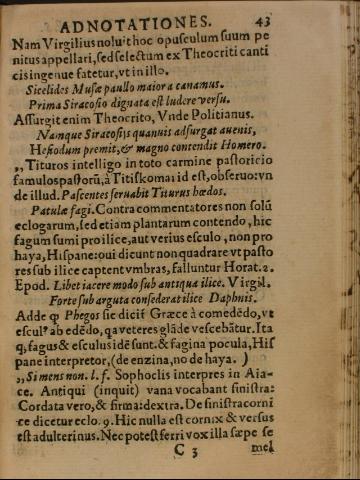 ADNOTATIONES. 43
Nam Virgilius noluit hoc opusculum suum pe
nitus appellari, sed selectum ex Theocriti canti
cis ingenue fatetur, vt in illo.
Sicelides Musæ paullo maiora canamus.
Prima Siracosio dignata est ludere versu.
Assurgit enim Theocrito, Vnde Politianus.
Namque Siracosijs quanuis adsurgat auenis,
Hesiodum premit, & magno contendit Homero.
,, Tituros intelligo in toto carmine pastoricio
famulos pastorū, à Titiskomai id est, obseruo: vn
de illud. Pascentes seruabit Titurus hœdos.
Patulæ fagi. Contra commentatores non solū
eclogarum, sed etiam plantarum contendo, hic
fagum sumi pro ilice, aut verius esculo, non pro
haya, Hispane: qui dicunt non quadrare vt pasto
res sub ilice captent vmbras, falluntur Horat. 2.
Epod. Libet iacere modo sub antiqua ilice. Virgil.
Forte sub arguta consederat ilice Daphnis.
Adde q̃ Phegos sic dicit̃ Græce à comedēdo, vt
escul⁹ ab edēdo, qa veteres glāde vescebātur. Ita
q;, fagus & esculus idē sunt. & fagina pocula, His
pane interpretor, (de enzina, no de haya. )
,, Si mens non. l. f. Sophoclis interpres in Aia-
ce. Antiqui (inquit) vana vocabant sinistra:
Cordata vero, & firma: dextra. De sinistra corni
ce dicetur eclo. 9. Hic nulla est cornix & versus
est adulterinus. Nec potest ferri vox illa sæpe se
C 3 mel